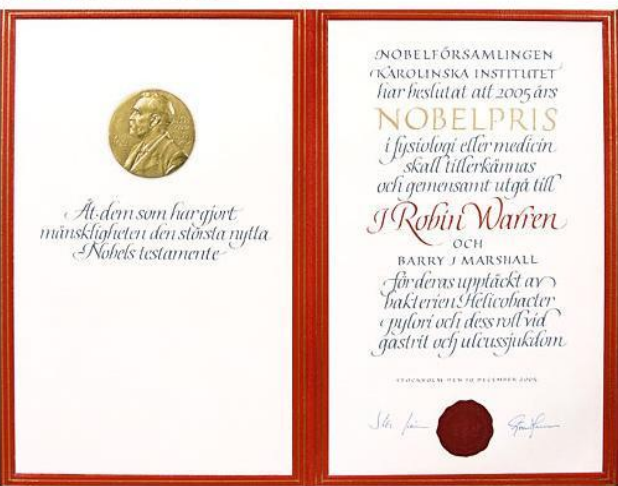 Åt dem som har gjort
mänskligheten den största nytta
Nobels testamente
NOBELFÖRSAMLINGEN
KAROLINSKA INSTITUTET
har beslutat att 2005 års
NOBELPRIS
i fysiologi eller medicin
skall tillerkännas
och gemensamt utgå till
J Robin Warren
OCH
BARRY J MARSHALL
för deras upptäckt av
bakterien Helicobacter
pylori och dess roll vid
gastrit och ulcussjukdom
STOCKHOLM DEN 10 DECEMBER 2005